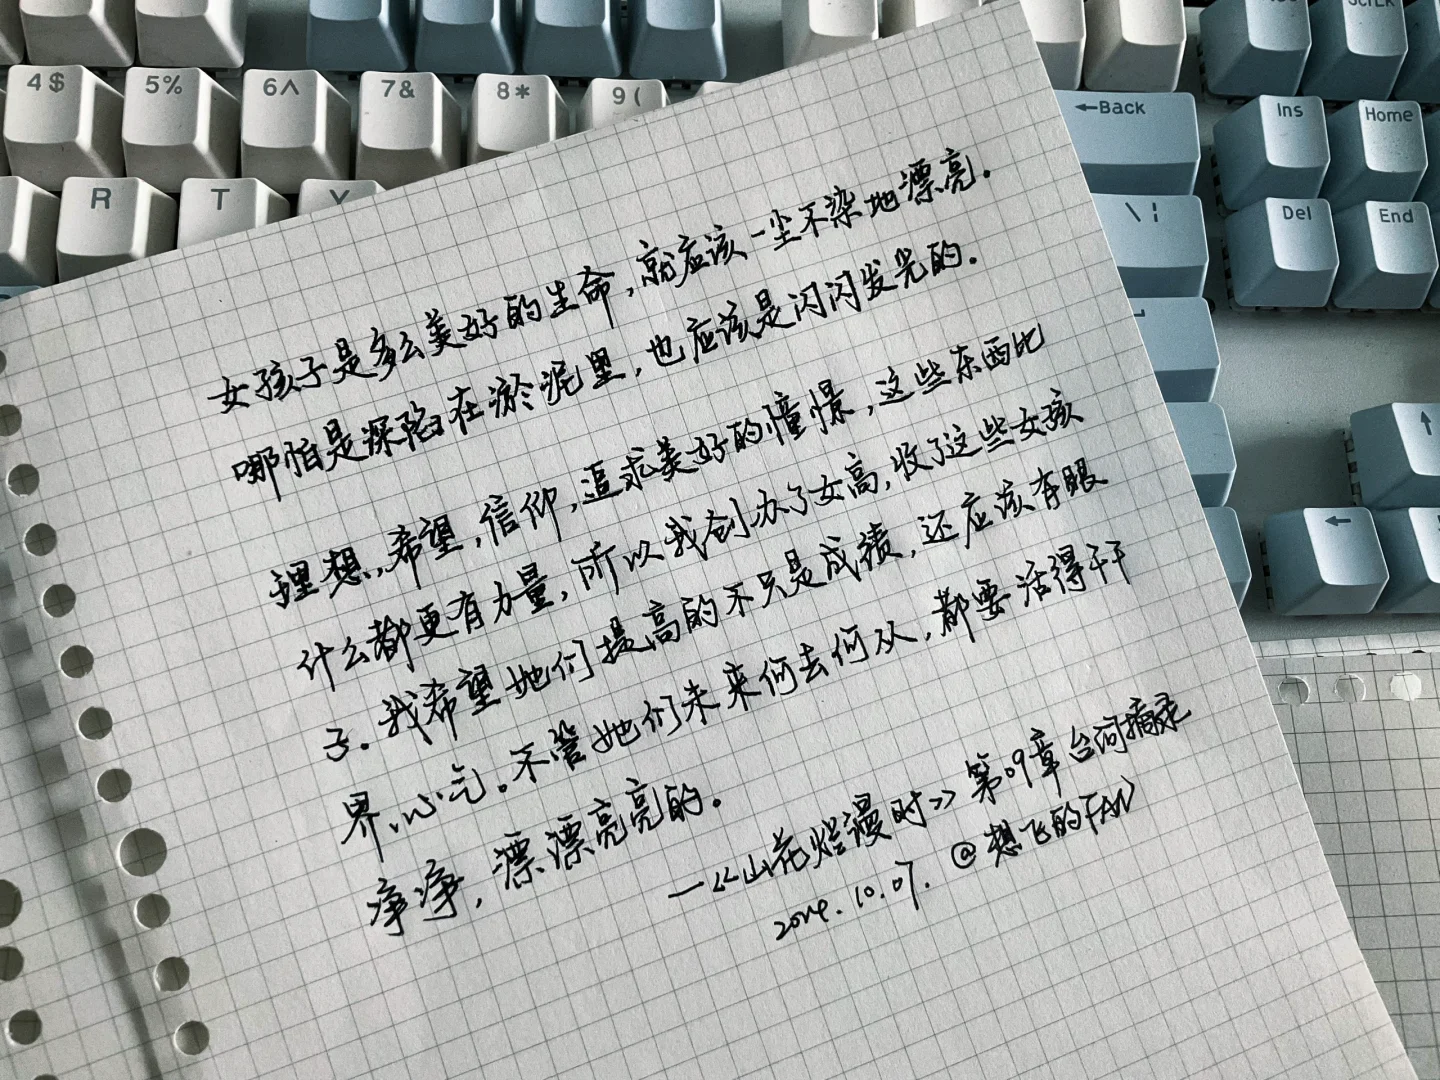 4$ 5% 6^ 7& 8* 9( ←Back Ins Home
R T Y \ | Del End
女孩子是多么美好的生命，就应该一尘不染地漂亮.
哪怕是深陷在淤泥里，也应该是闪闪发光的.
理想，希望，信仰，追求美好的憧憬，这些东西比
什么都更有力量，所以我创办了女高，收了这些女孩
子.我希望她们提高的不只是成绩，还应该有眼
界、心气。不管她们未来何去何从，都要活得干干
净净，漂漂亮亮的.
—《山花烂漫时》第09章台词摘录
2024.10.07. @想飞的FAN